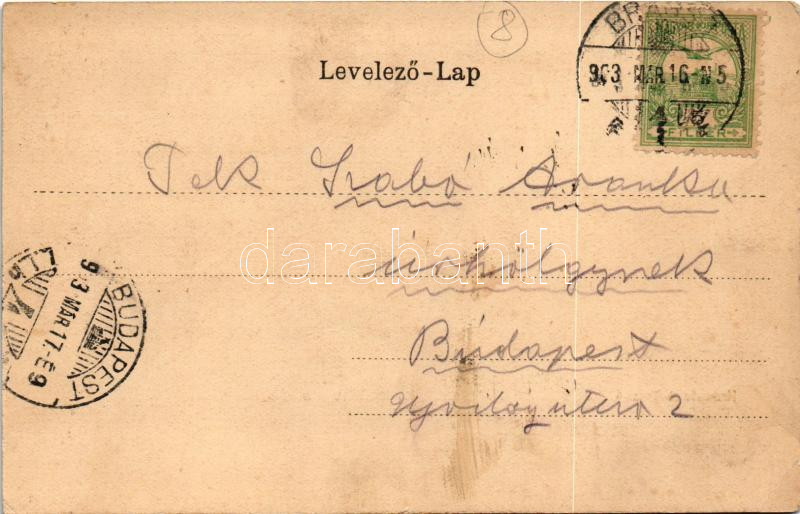 8
Levelező-Lap
903 MÁR. 16. N5
FILLÉR
Tek Szabó Aranka
úrhölgynek
Budapest
Ujvilág utca 2
BUDAPEST
903 MÁR 17. E9
darabanth.com